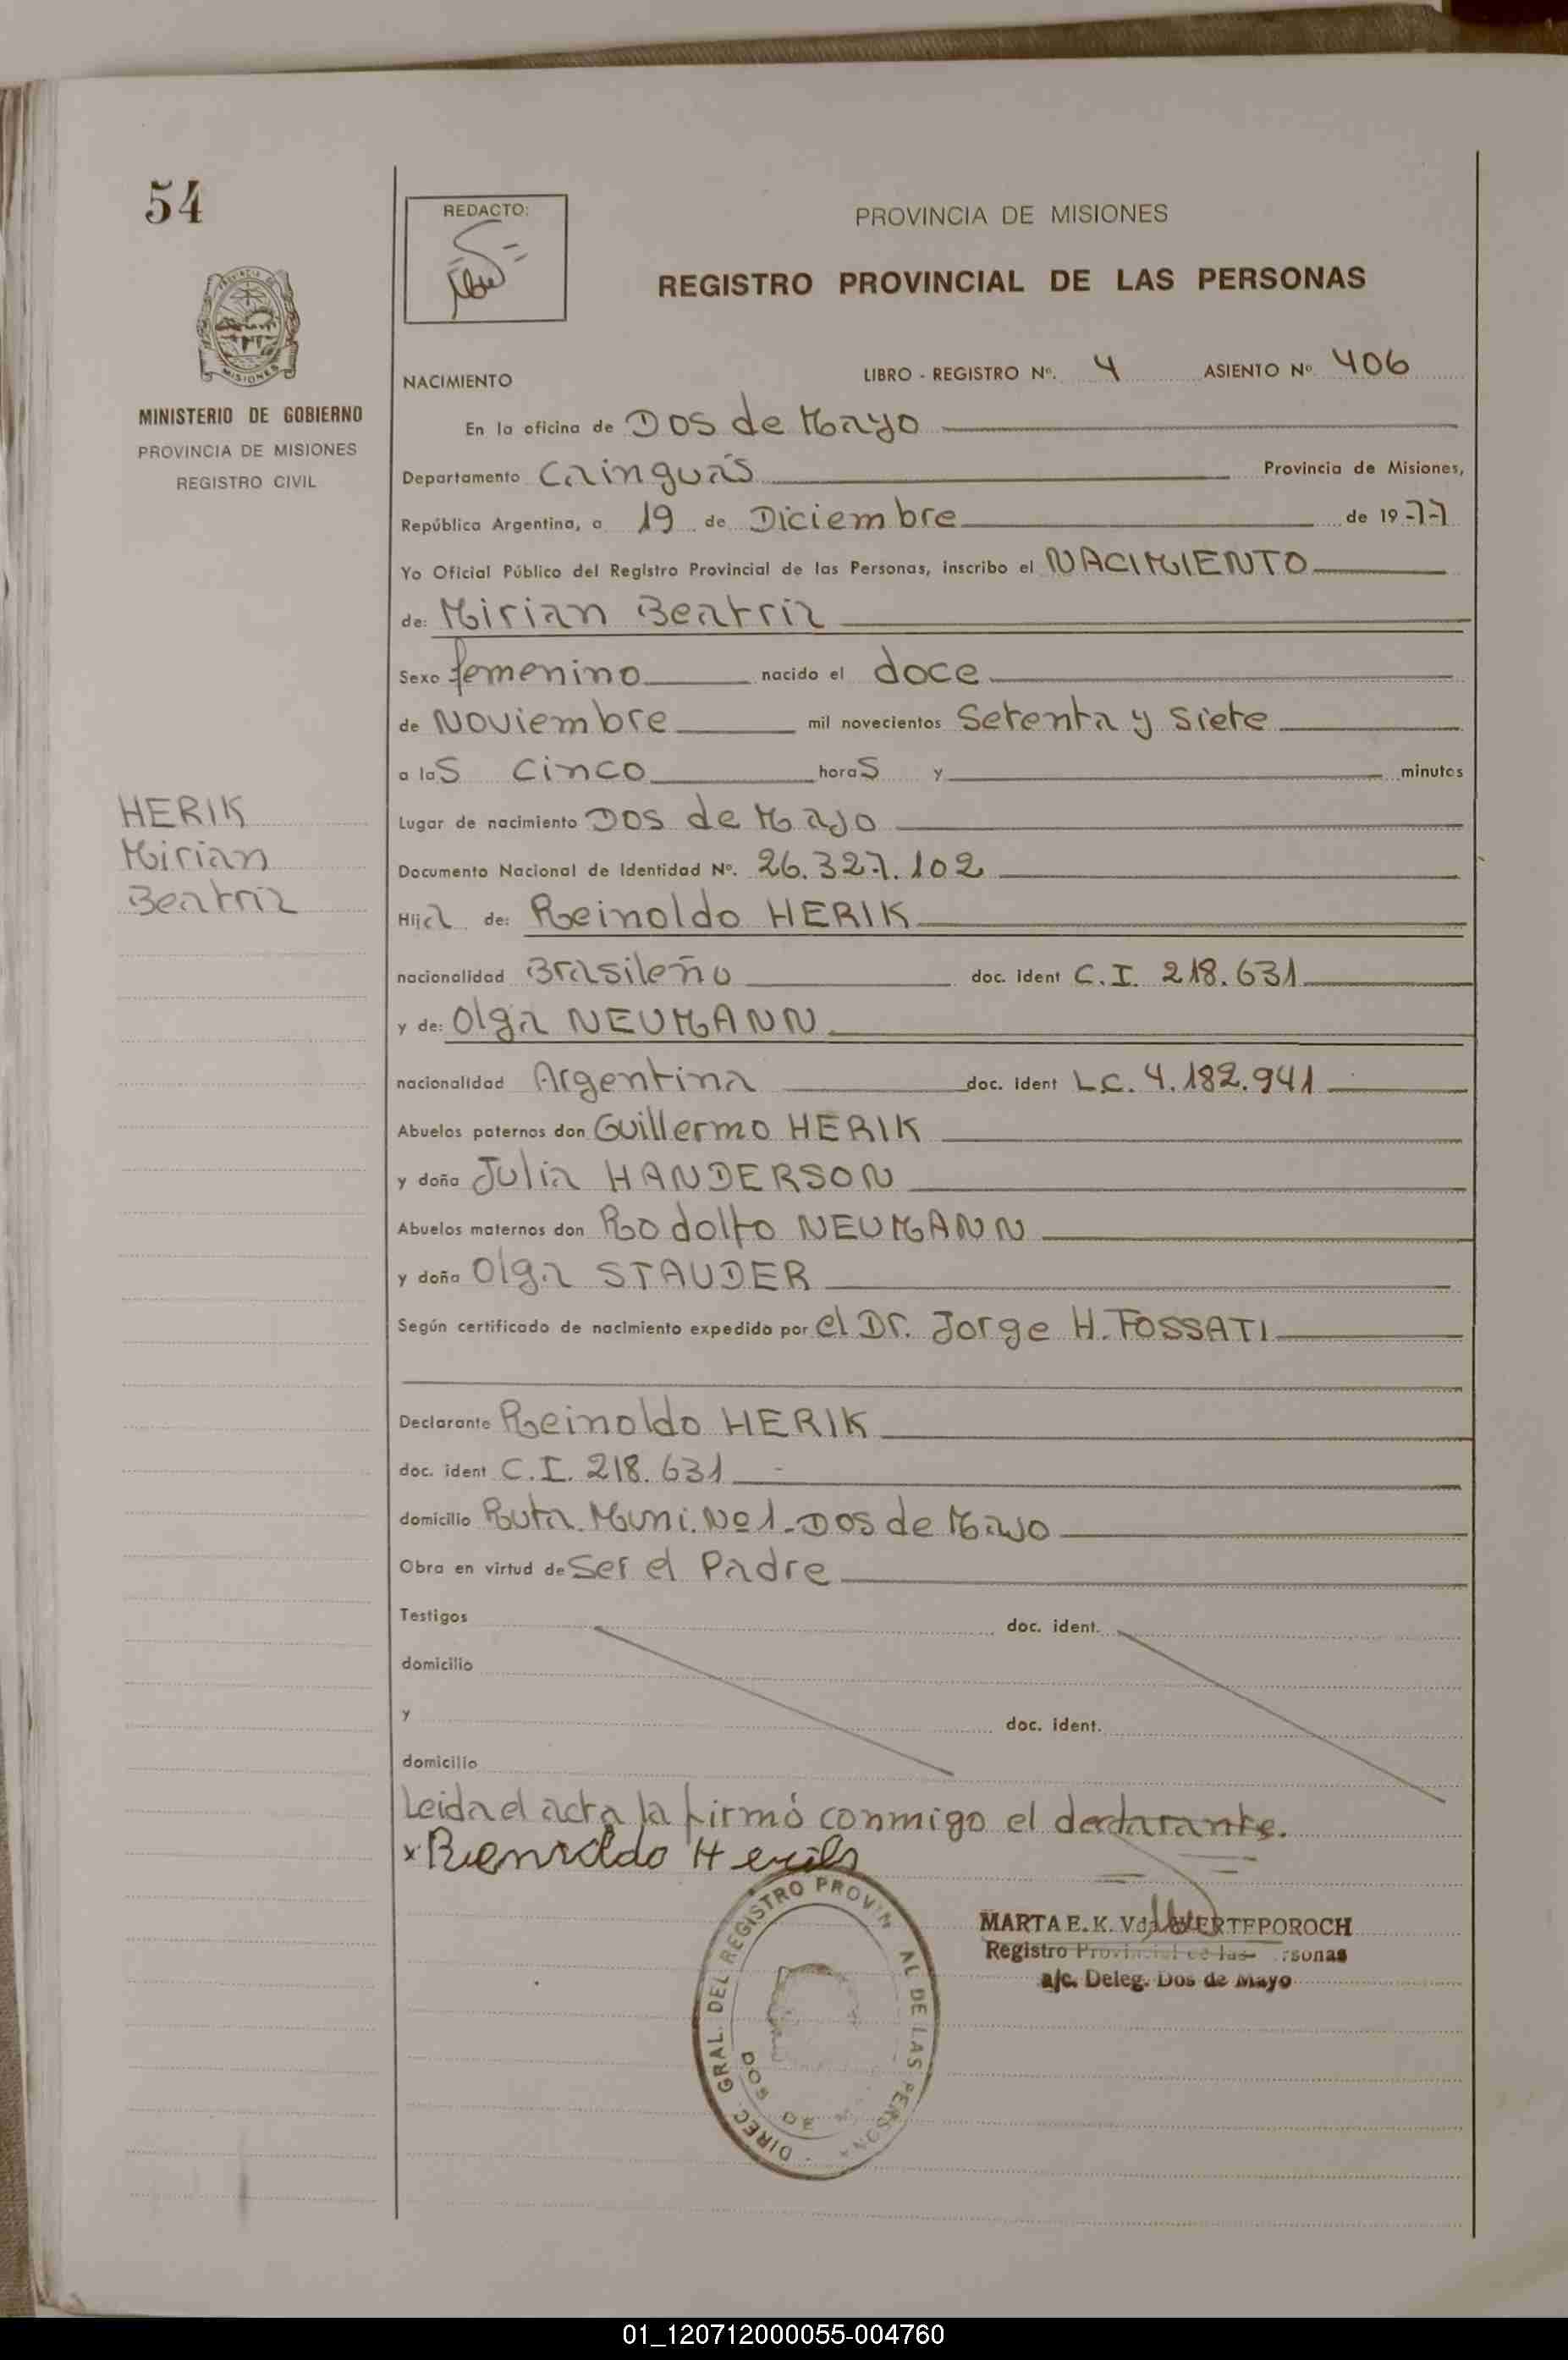 54
REDACTO:
PROVINCIA DE MISIONES
REGISTRO PROVINCIAL DE LAS PERSONAS
MINISTERIO DE GOBIERNO
PROVINCIA DE MISIONES
REGISTRO CIVIL
HERIK
Mirian
Beatriz
NACIMIENTO LIBRO - REGISTRO Nº. 4 ASIENTO Nº 406
En la oficina de Dos de Mayo
Departamento Cainguás Provincia de Misiones,
República Argentina, a 19 de Diciembre de 1977
Yo Oficial Público del Registro Provincial de las Personas, inscribo el NACIMIENTO
de: Mirian Beatriz
Sexo femenino nacido el doce
de Noviembre mil novecientos Setenta y Siete
a las cinco horas y minutos
Lugar de nacimiento Dos de Mayo
Documento Nacional de Identidad Nº. 26.327.102
Hija de: Reinoldo HERIK
nacionalidad Brasileño doc. ident C.I. 218.631
y de: Olga NEUMANN
nacionalidad Argentina doc. ident L.C. 4.182.941
Abuelos paternos don Guillermo HERIK
y doña Julia HANDERSON
Abuelos maternos don Rodolfo NEUMANN
y doña Olga STAUDER
Según certificado de nacimiento expedido por el Dr. Jorge H. FOSSATI
Declarante Reinoldo HERIK
doc. ident C.I. 218.631
domicilio Ruta. Muni. Nº 1 - Dos de Mayo
Obra en virtud de Ser el Padre
Testigos doc. ident.
domicilio
y doc. ident.
domicilio
Leida el acta la firmó conmigo el declarante.
x Rienroldo Herik
DIREC. GRAL. DEL REGISTRO PROVIN AL DE LAS PERSONA
DOS DE
MARTA E. K. Vda WERTEPOROCH
Registro Provincial de las rsonas
a/c. Deleg. Dos de Mayo
01_120712000055-004760